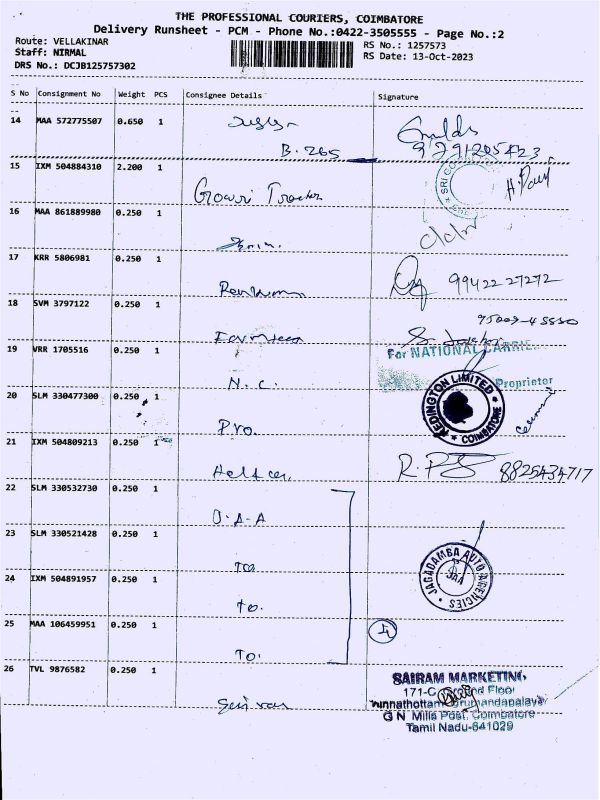 THE PROFESSIONAL COURIERS, COIMBATORE
Delivery Runsheet - PCM - Phone No.:0422-3505555 - Page No.:2
Route: VELLAKINAR
RS No.: 1257573
Staff: NIRMAL
RS Date: 13-Oct-2023
DRS No.: DCJB125757302
S No Consignment No Weight PCS Consignee Details Signature
14 MAA 572775507 0.650 1
B. 265
9291205423
15 IXM 504884310 2.200 1
SRI
Gowri
16 MAA 861889980 0.250 1
17 KRR 5806981 0.250 1
99422 27272
18 SVM 3797122 0.250 1
19 VRR 1705516 0.250 1
For NATIONAL CARRIE
Proprietor
N. C.
20 SLM 330477300 0.250 1
REDINGTON LIMITED
* COIMBATORE *
Pro.
21 IXM 504809213 0.250 1
8825434717
22 SLM 330532730 0.250 1
J-A-A
23 SLM 330521428 0.250 1
JAGADAMBA AUTO AGENCIES
JAA
24 IXM 504891957 0.250 1
To.
25 MAA 106459951 0.250 1
4
To.
26 TVL 9876582 0.250 1
SAIRAM MARKETING
171-C, Ground Floor
G N Mills Post, Coimbatore
Tamil Nadu-641029